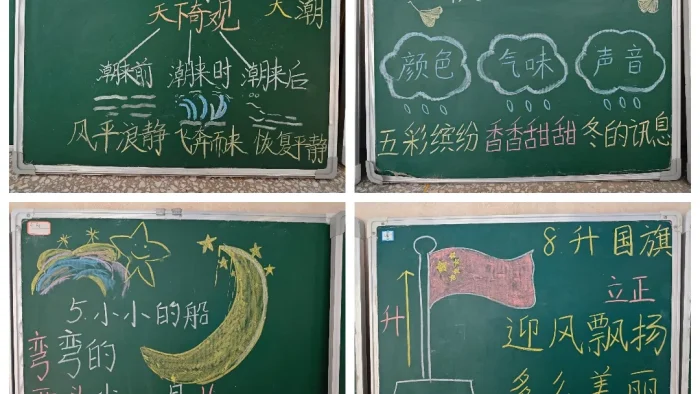 天下奇观 大潮
潮来前 潮来时 潮来后
风平浪静 飞奔而来 恢复平静
颜色 气味 声音
五彩缤纷 香香甜甜 冬的讯息
5.小小的船
弯弯的
8.升国旗
立正
升
迎风飘扬
多么美丽